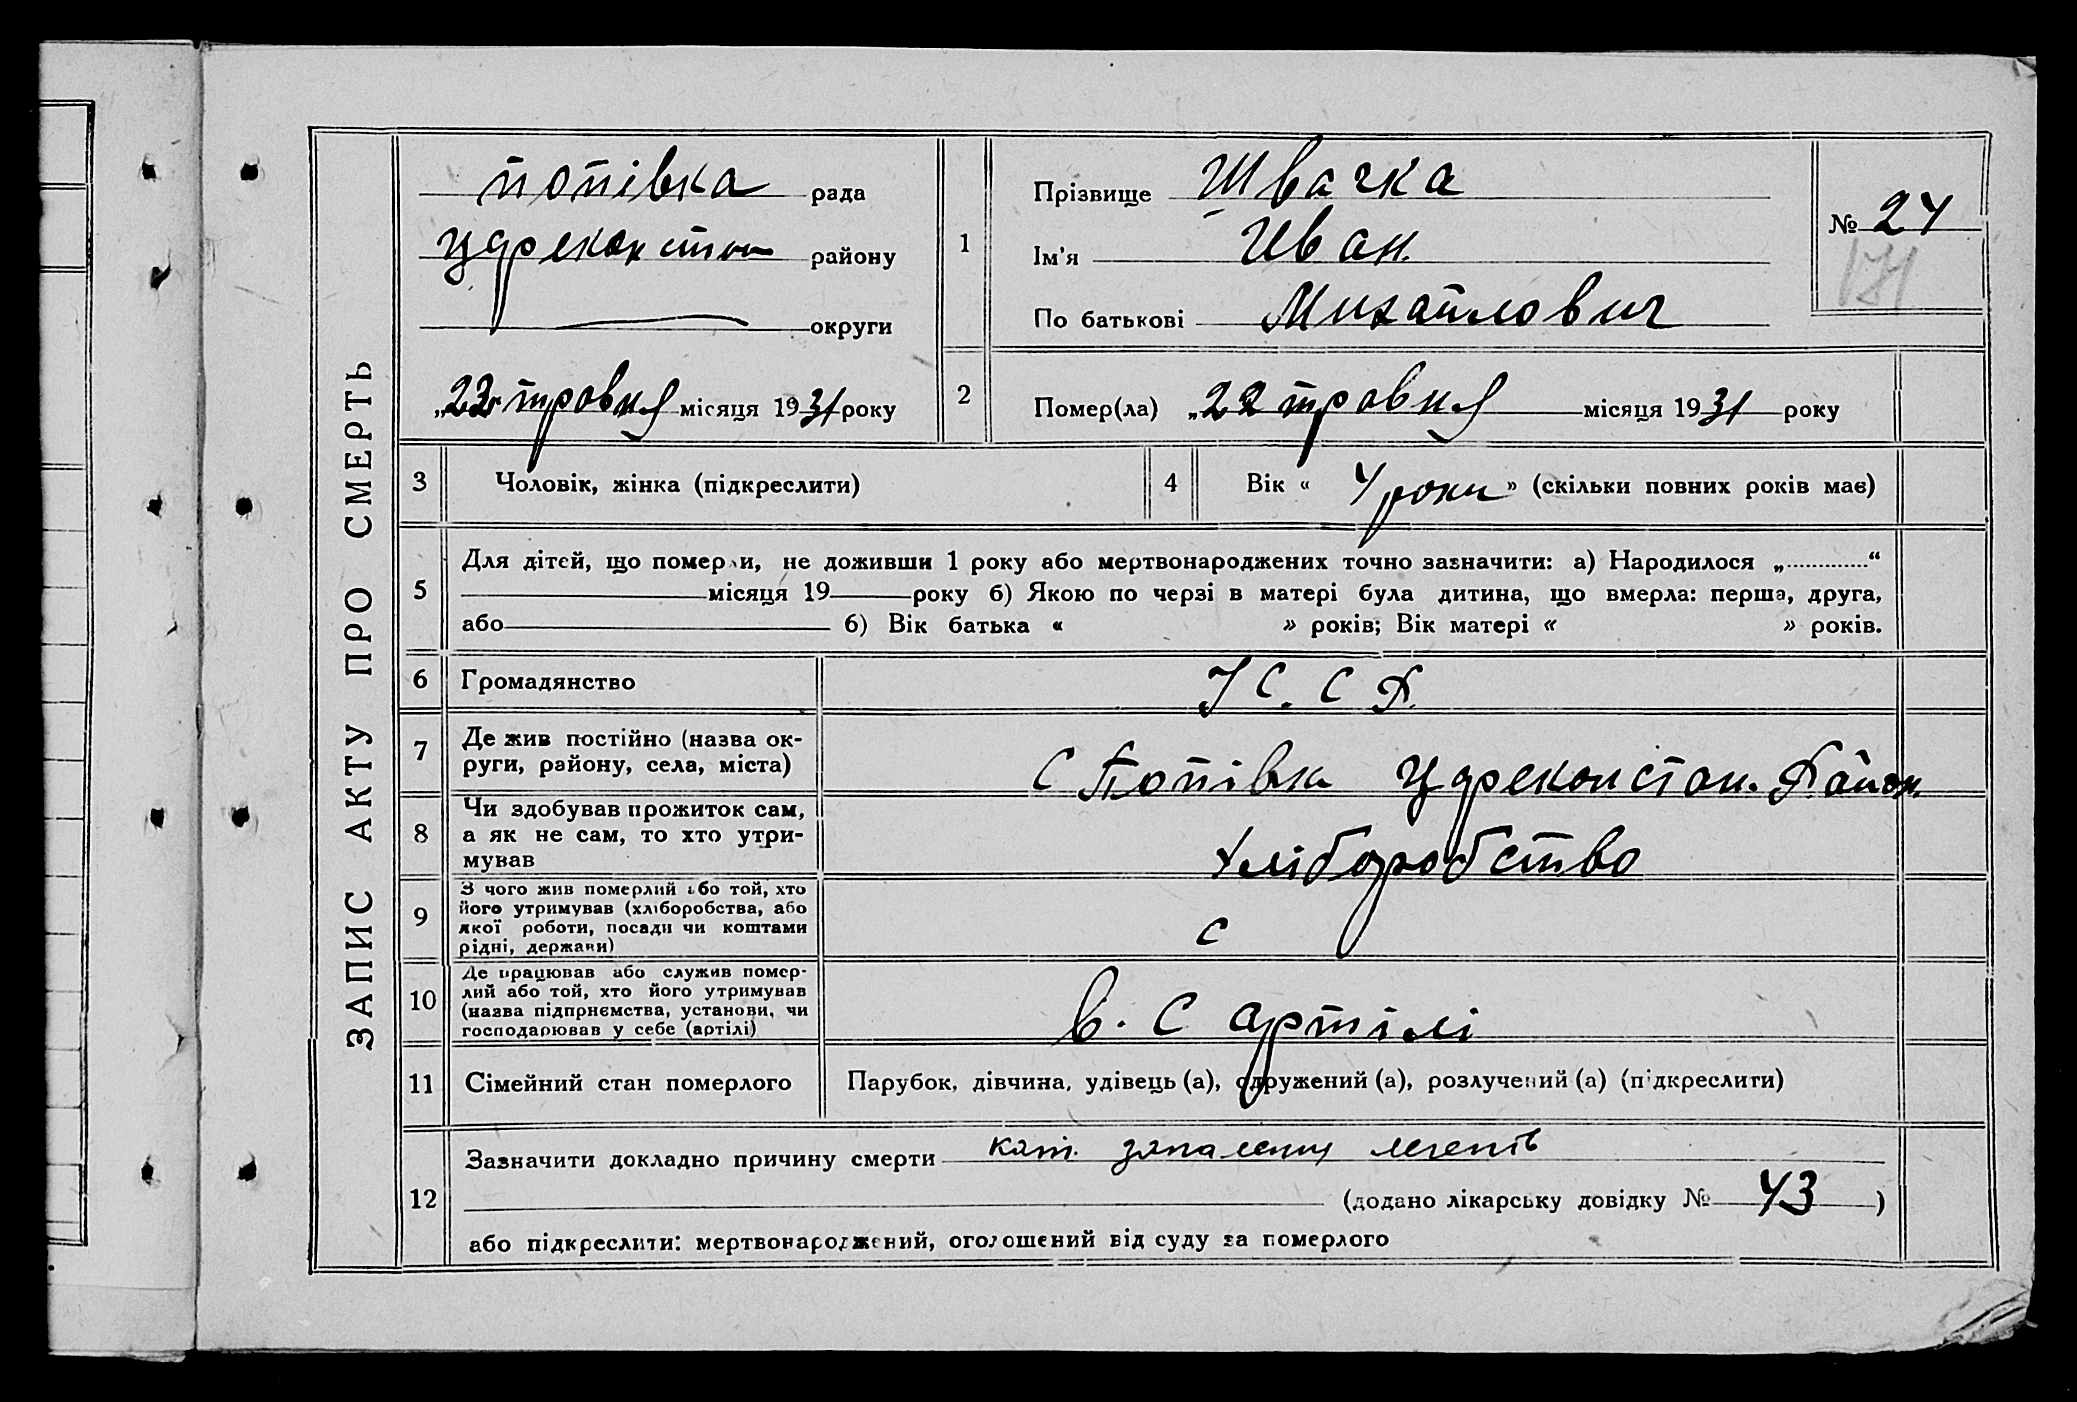 ЗАПИС АКТУ ПРО СМЕРТЬ
попівка рада
району
округи
„22 травня місяця 1931 року
1
Прізвище Швачка
Ім'я Иван
По батькові Михайлович
№ 24
171
2
Помер(ла) „22 травня місяця 1931 року
3
Чоловік, жінка (підкреслити)
4
Вік « 4 роки » (скільки повних років має)
5
Для дітей, що померли, не доживши 1 року або мертвонароджених точно зазначити: а) Народилося „ “
місяця 19 року б) Якою по черзі в матері була дитина, що вмерла: перша, друга,
або б) Вік батька « » років; Вік матері « » років.
6
Громадянство
У С. С Р.
7
Де жив постійно (назва ок-
руги, району, села, міста)
С Попівка Район.
8
Чи здобував прожиток сам,
а як не сам, то хто утри-
мував
хліборобство
9
З чого жив померлий або той, хто
його утримував (хліборобства, або
якої роботи, посади чи коштами
рідні, держави)
с
10
Де працював або служив помер-
лий або той, хто його утримував
(назва підприємства, установи, чи
господарював у себе (артілі)
в. С артілі
11
Сімейний стан померлого
Парубок, дівчина, удівець (а), одружений (а), розлучений (а) (підкреслити)
12
Зазначити докладно причину смерти кат. запалення легенів
(додано лікарську довідку № 43 )
або підкреслити: мертвонароджений, оголошений від суду за померлого